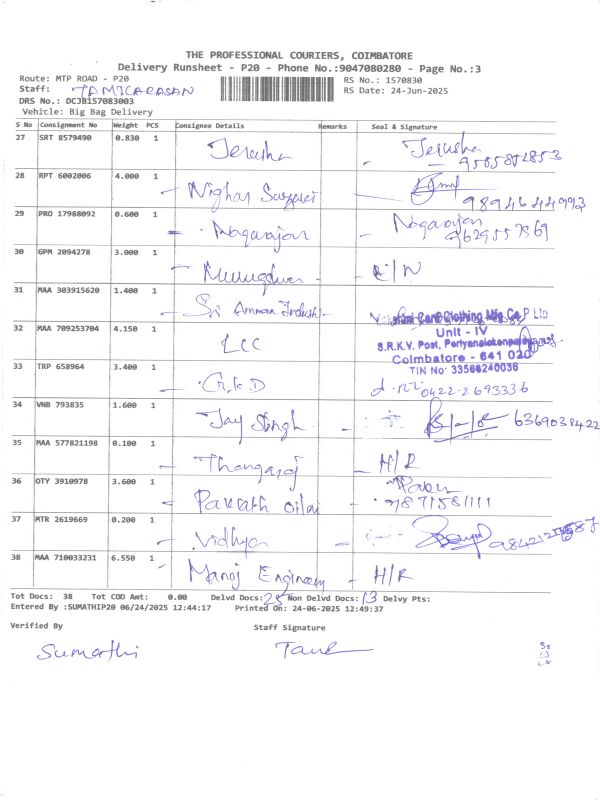 THE PROFESSIONAL COURIERS, COIMBATORE
Delivery Runsheet - P20 - Phone No.:9047080280 - Page No.:3
Route: MTP ROAD - P20
RS No.: 1570830
Staff: TAMILARASAN
RS Date: 24-Jun-2025
DRS No.: DCJB157083003
Vehicle: Big Bag Delivery
S No Consignment No Weight PCS Consignee Details Remarks Seal & Signature
27 SRT 8579490 0.830 1 Jerusha - Jerusha
28 RPT 6002006 4.000 1
29 PRO 17988092 0.600 1 Nagarajan - Nagarajan
30 GPM 2094278 3.000 1
31 MAA 303915620 1.400 1 Sri Amman Industri
32 MAA 709253704 4.150 1 LCC
Unit - IV
S.R.K.V. Post, Periyanaickenpalayam
Coimbatore - 641 020
TIN No: 33566240036
33 TRP 658964 3.400 1 G.K.D 0422-2693336
34 VNB 793835 1.600 1 Jay Singh 6369038422
35 MAA 577821198 0.100 1 Thangaraj - H/R
36 OTY 3910978 3.600 1
37 MTR 2619669 0.200 1 Vidhya
38 MAA 710033231 6.550 1 Manoj Engineery - H/R
Tot Docs: 38 Tot COD Amt: 0.00 Delvd Docs: 25 Non Delvd Docs: 13 Delvy Pts:
Entered By :SUMATHIP20 06/24/2025 12:44:17 Printed On: 24-06-2025 12:49:37
Verified By Staff Signature
Sumathi